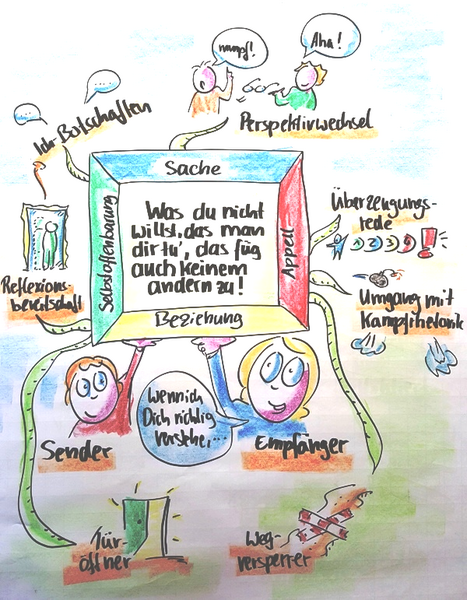 Aha!
Ich-Botschaften
Perspektivwechsel
Sache
Selbstoffenbarung
Was du nicht
willst, das man
dir tu', das füg
auch keinem
andern zu!
Appell
Beziehung
Überzeugungs-
rede
Reflexions-
bereitschaft
Umgang mit
Kampfrhetorik
Wenn ich
Dich richtig
verstehe,...
Sender
Empfänger
Tür-
öffner
Weg-
versperrer